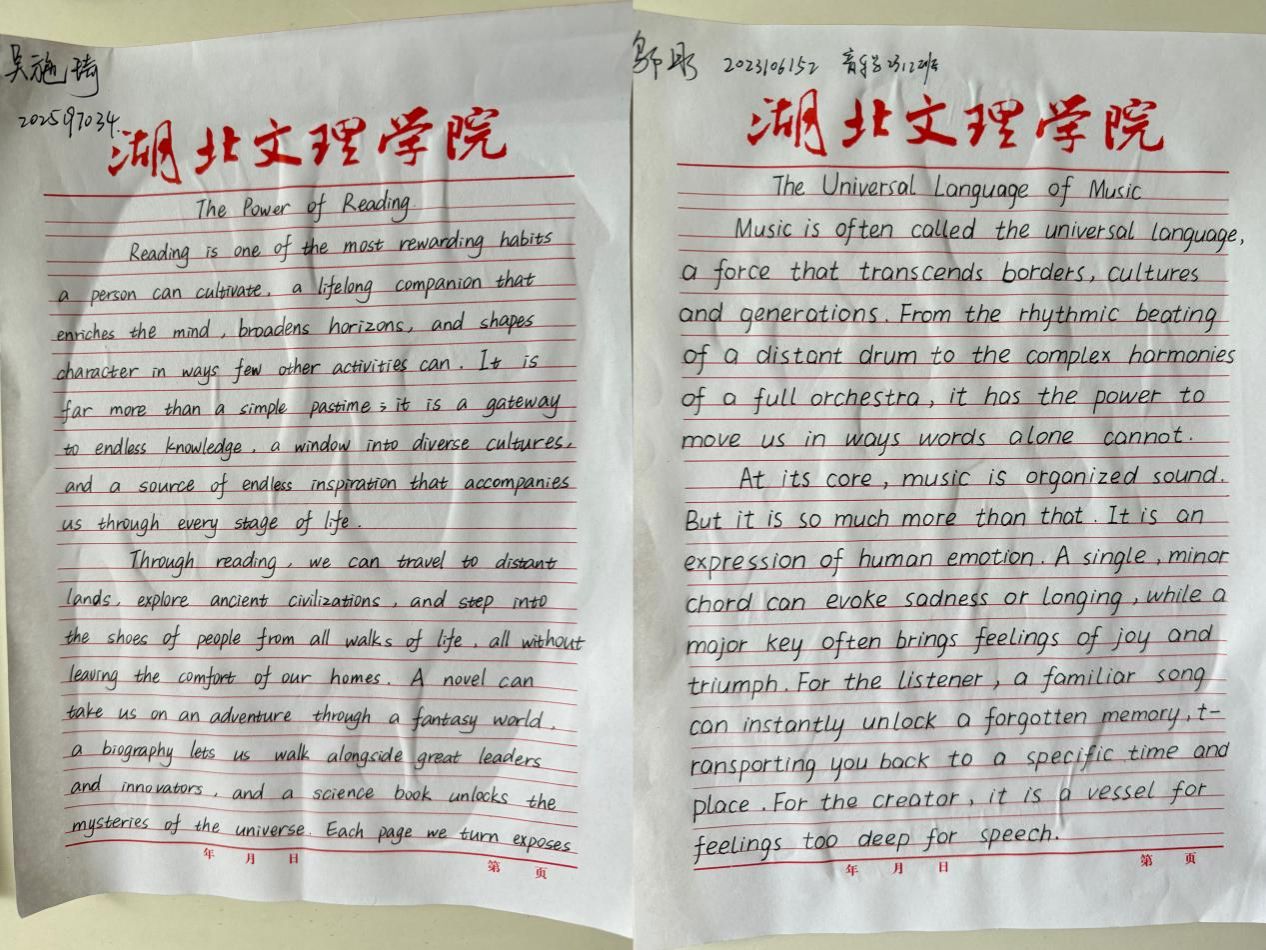 吴施琦
2025197034
湖北文理学院
The Power of Reading
Reading is one of the most rewarding habits
a person can cultivate, a lifelong companion that
enriches the mind, broadens horizons, and shapes
character in ways few other activities can. It is
far more than a simple pastime; it is a gateway
to endless knowledge, a window into diverse cultures,
and a source of endless inspiration that accompanies
us through every stage of life.
Through reading, we can travel to distant
lands, explore ancient civilizations, and step into
the shoes of people from all walks of life, all without
leaving the comfort of our homes. A novel can
take us on an adventure through a fantasy world,
a biography lets us walk alongside great leaders
and innovators, and a science book unlocks the
mysteries of the universe. Each page we turn exposes
年 月 日
第 页
2023106152 音乐学2312班
湖北文理学院
The Universal Language of Music
Music is often called the universal language,
a force that transcends borders, cultures
and generations. From the rhythmic beating
of a distant drum to the complex harmonies
of a full orchestra, it has the power to
move us in ways words alone cannot.
At its core, music is organized sound.
But it is so much more than that. It is an
expression of human emotion. A single, minor
chord can evoke sadness or longing, while a
major key often brings feelings of joy and
triumph. For the listener, a familiar song
can instantly unlock a forgotten memory, t-
ransporting you back to a specific time and
place. For the creator, it is a vessel for
feelings too deep for speech.
年 月 日
第 页